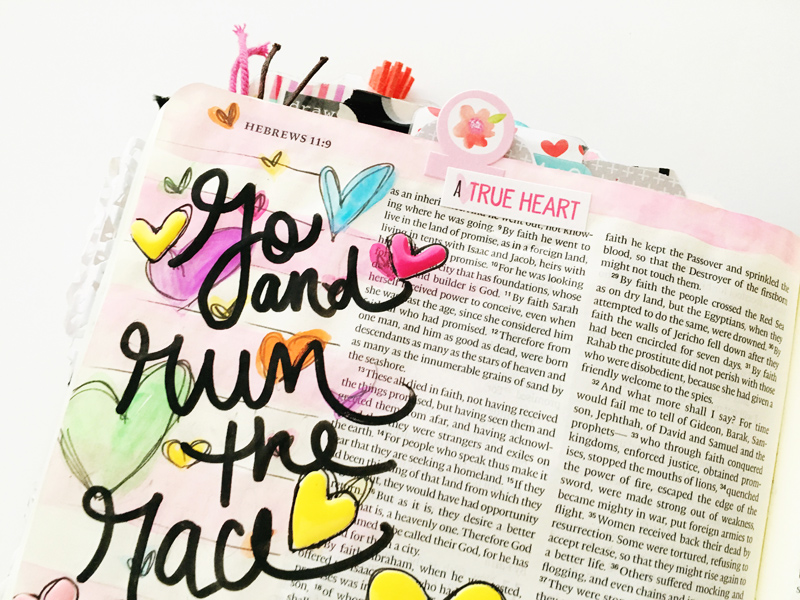 draw
HEBREWS 11:9
A TRUE HEART
Go
and
run
the
race
as an inheri
ing where he was going. 9 By faith he went to
live in the land of promise, as in a foreign land,
living in tents with Isaac and Jacob, heirs with
promise. 10 For he was looking
city that has foundations, whose
and builder is God. 11 By faith Sarah
herself received power to conceive, even when
she was past the age, since she considered him
who had promised. 12 Therefore from
one man, and him as good as dead, were born
descendants as many as the stars of heaven and
as many as the innumerable grains of sand by
the seashore.
13 These all died in faith, not having received
the things promised, but having seen them and
them from afar, and having acknowl-
they were strangers and exiles on
the earth. 14 For people who speak thus make it
that they are seeking a homeland. 15 If they
had been of that land from which they
they would have had opportunity
But as it is, they desire a better
that is, a heavenly one. Therefore God
to be called their God, for he has
for them a city.
By faith Abraham, when he was tested,
offered
was
son, 18 of
faith he kept the Passover and sprinkled the
blood, so that the Destroyer of the firstborn
might not touch them.
29 By faith the people crossed the Red Sea
as on dry land, but the Egyptians, when they
attempted to do the same, were drowned. 30 By
faith the walls of Jericho fell down after they
had been encircled for seven days. 31 By faith
Rahab the prostitute did not perish with those
who were disobedient, because she had given a
friendly welcome to the spies.
32 And what more shall I say? For time
would fail me to tell of Gideon, Barak, Sam-
son, Jephthah, of David and Samuel and the
prophets— 33 who through faith conquered
kingdoms, enforced justice, obtained prom-
ises, stopped the mouths of lions, 34 quenched
the power of fire, escaped the edge of the
sword, were made strong out of weakness,
became mighty in war, put foreign armies to
flight. 35 Women received back their dead by
resurrection. Some were tortured, refusing to
accept release, so that they might rise again to
a better life. 36 Others suffered mocking and
flogging, and even chains and
37 They were